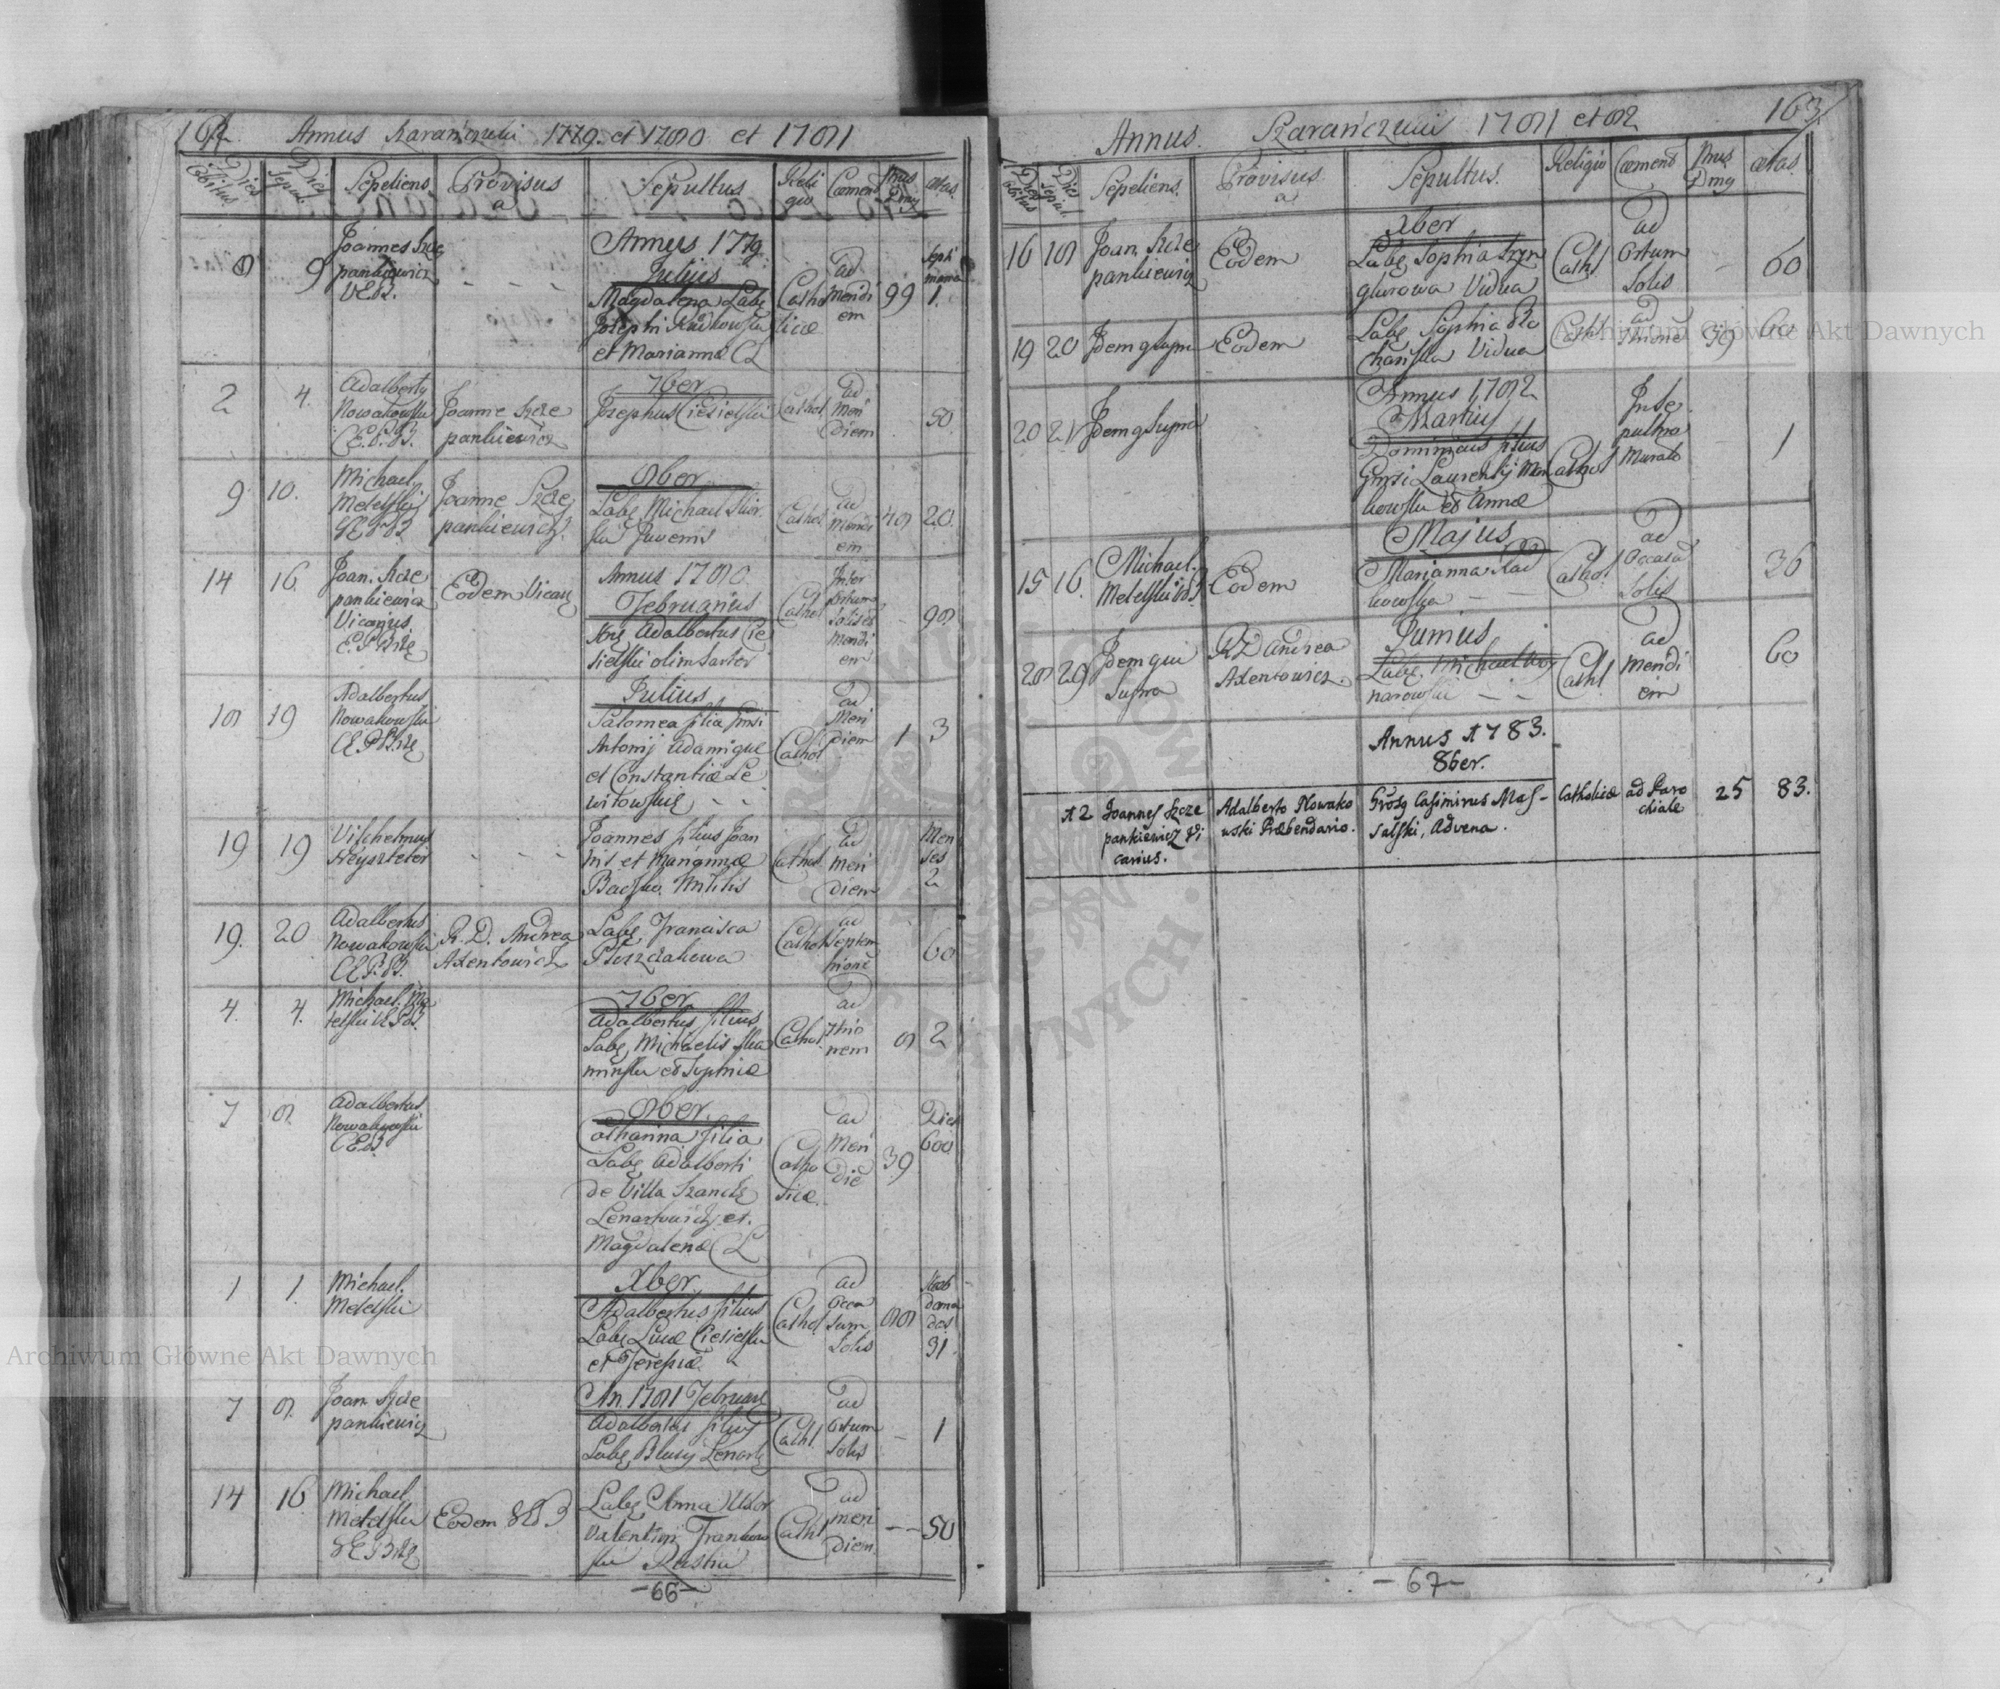 162. Annus Szaranczuki 1779. et 1780 et 1781
Dies Obitus
Dies Sepul.
Sepeliens
Provisus a
Sepultus
Religio
Coemend
Nus Dmg
ætas.
8 9
Joannes Szcze
pankiewicz
VEB.
Annus 1779.
Julius
Magdalena Labs
Josephi Radkowski
et Marianna CL
Catho
licæ
ad
meridi
em
99
Septi
mana
1.
2 4.
Adalberty
Nowakowski
C.E.P.B.
Joanne Szcze
pankiewicz
7ber
Josephus Ciesielski
Cathol
ad
Meri
diem
50.
9 10.
Michael
Metelski
VEPB
Joanne Szcze
pankiewicz.
8ber
Labs Michael
ski Juvenis
Cathol
ad
Meridi
em
48
20.
14 16.
Joan. Szcze
pankiewicz
Vicarius
E.P.Brze
Eodem Vicari
Annus 1780.
Februarius
Adalbertus Cie
sielski olim Sartor
Cathol
Inter
ortum
Solis et
Meridi
em
-
98
18 19
Adalbertus
Nowakowski
CEPBrze
Julius
Salomea filia Gnsi
Antonij Adamique
et Constantiæ Le
witowskie, - -
Cathol
ad
Meri
diem
1
3
19 19
Vilhelmus
Heyszteter
- - -
Joannes filius Joan
nis et Marianna
Militis
Cathol
ad
Meri
diem
Men
ses
2
19. 20
Adalbertus
Nowakowski
CEP.B.
R. D. Andrea
Axentowicz
Labs Francisca
Cathol
ad
Septem
trione
60
4. 4.
Michael. Me
telski VEPB.
7ber
Adalbertus filius
Labs Michaelis Ska
minski et Sophiæ
Cathol
ad
7trio
nem
8
2
7 8.
Adalbertus
Nowakowski
CEB
8ber.
Catharina filia
Labs Adalberti
de Villa
Lenartowicz et.
Magdalenæ CL
Catho
licæ.
ad
Meri
die
39
Dies
600
1 1.
Michael.
Metelski
Xber
Adalbertus filius
Labs Lucæ Ciesielski
et Teresiæ.
Cathol
ad
Occa
sum
Solis
88
Hæb
doma
das
31.
7 8.
Joan Szcze
pankiewicz
An. 1781 Februari
Adalbertus filius
Labs Blasij Lenart
Cathl.
ad
Ortum
Solis
-
1
14 16
Michael
Metelski
VEPBrze
Eodem
Labs Anna Uxor
Valentini Frankow
ski
Cathl
ad
meri
diem.
- -
50
-66-
Annus. Szaranczuki 1781 et 82 163.
Dies obitus
Dies sepul.
Sepeliens.
Provisus. a
Sepultus.
Religio
Coemend
Nus Dmg
ætas.
16 18
Joan. Szcze
pankiewicz
Eodem
Xber
Labs Sophia
Vidua
Cathl
ad
Ortum
Solis
-
60
19 20
Jdem q supra
Eodem
Labs Sophia
Vidua
Cathl
ad
7trione
39
60
20 21
Jdem q supra
Annus 1782
Martius
Dominicus filius
Gnsi Laurentij Mon
kowski et Annæ
Cathol
Jn Se
pulhro
Murato
1
15 16.
Michael.
Metelski
Eodem
Majus
Marianna Rad
kowska - -
Cathol
ad
Occasu
Solis
36
28 29
Jdem qui
supra
RD Andrea
Axentowicz.
Junius
Labs. Michael Woy
narowski - -
Cathl.
ad
Meridi
em
60
Annus 1783.
8ber.
12
Joannes Szcze
pankiewicz Vi
carius.
Adalberto Nowako
wski Præbendario.
Grosq Casimirus Mas-
salski, Advena.
Catholicæ
ad Paro
chiale
25
83.
-67-
Archiwum Główne Akt Dawnych
Archiwum Główne Akt Dawnych